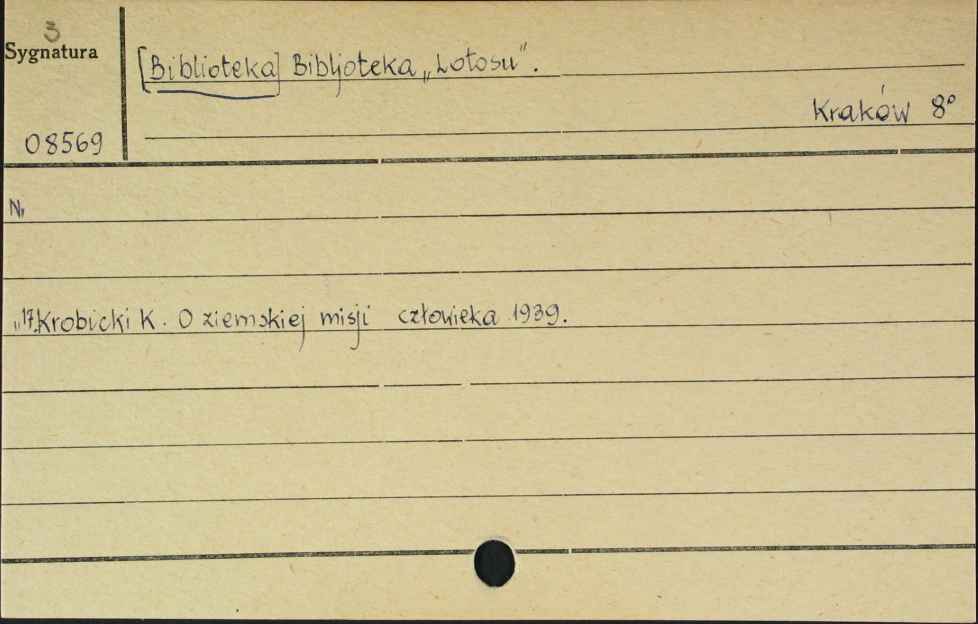 3
Sygnatura
[Biblioteka] Bibljoteka „Lotosu".
Kraków 8°
08569
Nr
„ 17. Krobicki K. O ziemskiej misji człowieka 1939.